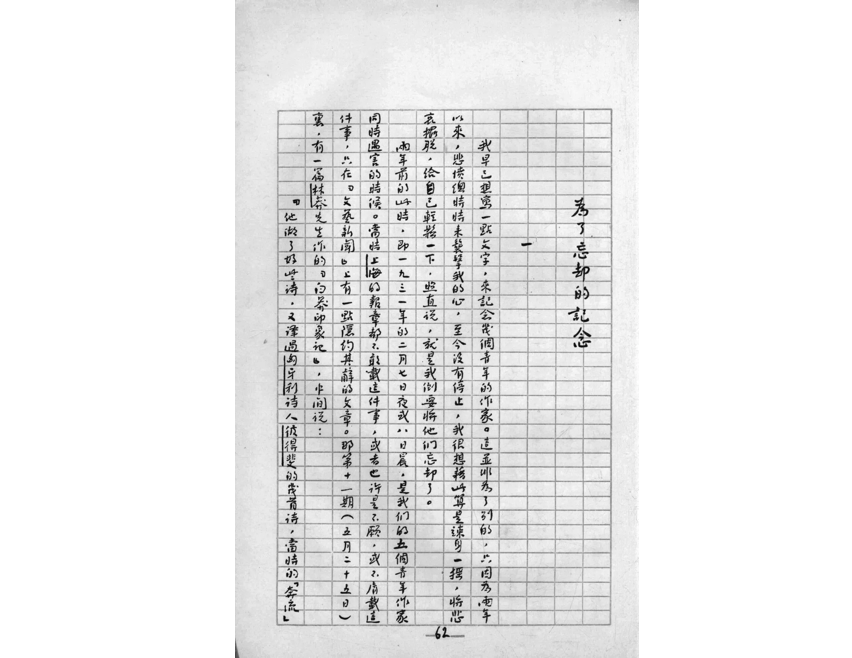 為了忘却的記念
一
我早已想寫一點文字，來記念幾個青年的作家。這並非為了別的，只因為兩年
以來，悲憤總時時來襲擊我的心，至今沒有停止，我很想藉此算是竦身一搖，將悲
哀擺脫，給自己輕鬆一下，照直說，就是我倒要將他們忘却了。
兩年前的此時，即一九三一年的二月七日夜或八日晨，是我們的五個青年作家
同時遇害的時候。當時上海的報章都不敢載這件事，或者也許是不願，或不屑載這
件事，只在『文藝新聞』上有一點隱約其辭的文章。那第十一期（五月二十五日）
裏，有一篇林莽先生作的『白莽印象記』，中間說：
『他做了好些詩，又譯過匈牙利詩人彼得斐的幾首詩，當時的『奔流』
62